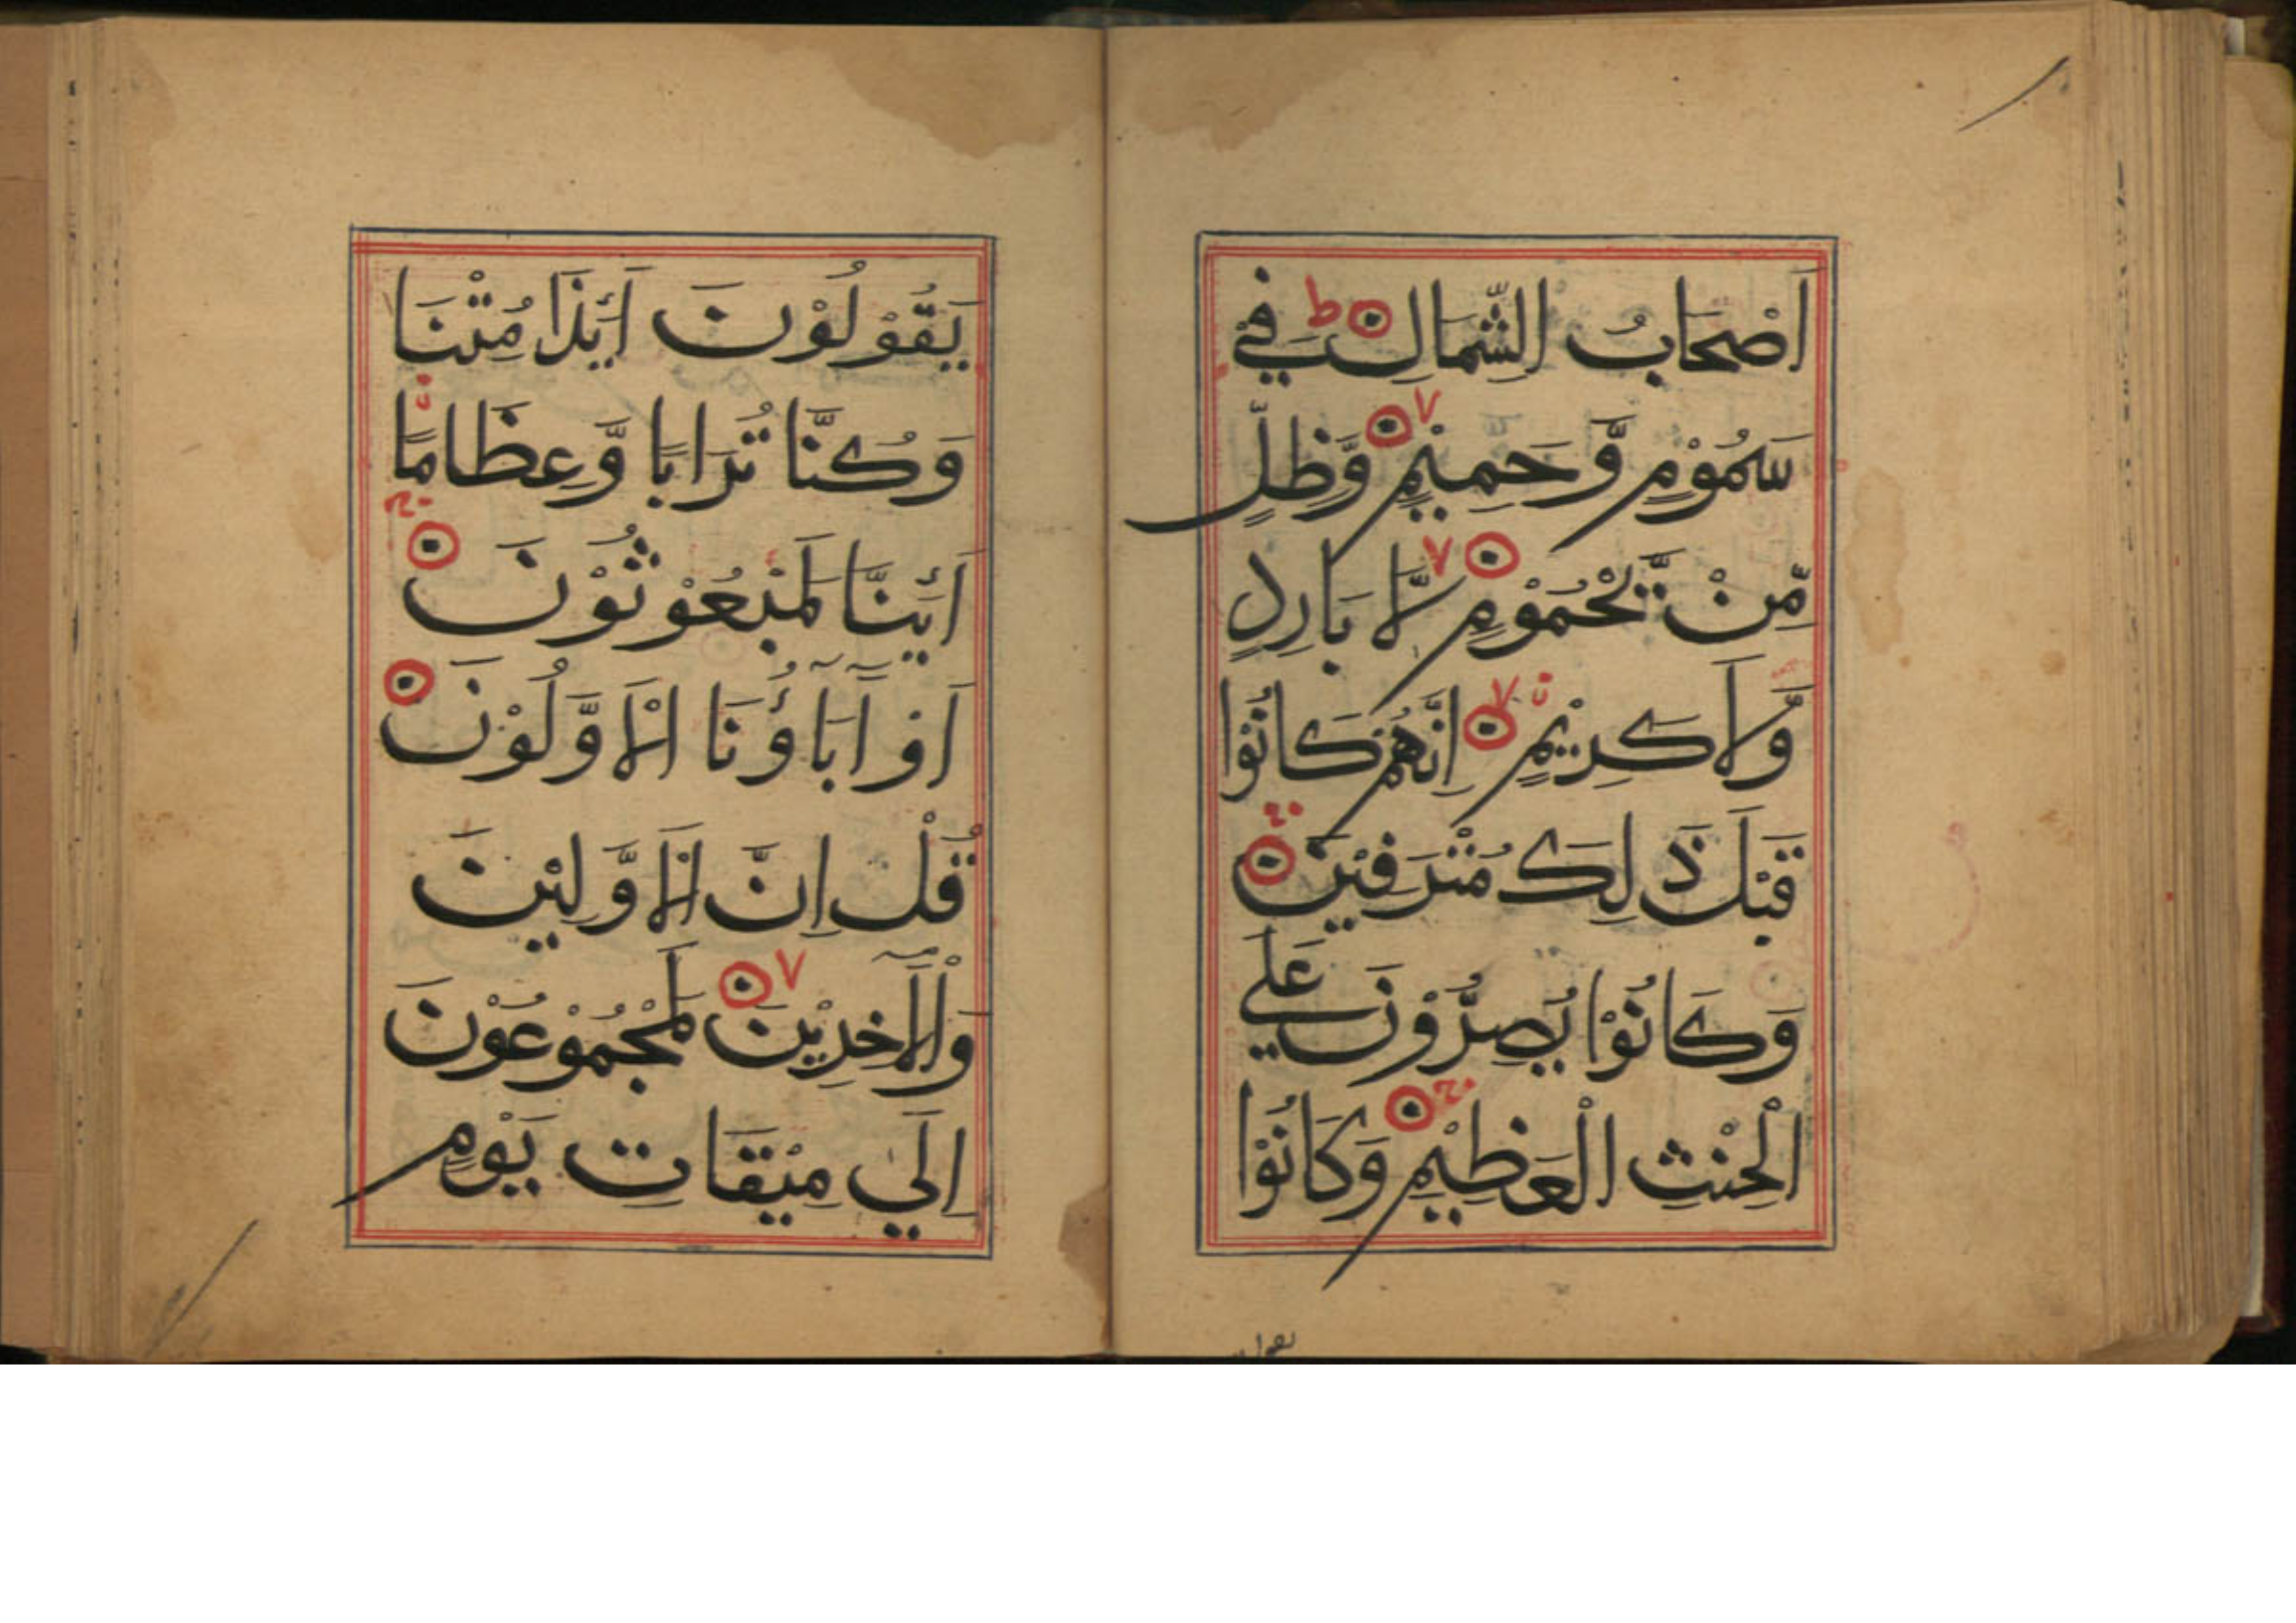 اَصْحَابُ الشِّمَالِ ط فِيْ
سَمُوْمٍ وَّحَمِيْمٍ ٧ وَّظِلٍّ
مِّنْ يَّحْمُوْمٍ ٧ لَّا بَارِدٍ
وَّلَا كَرِيْمٍ ٧ اِنَّهُمْ كَانُوْا
قَبْلَ ذَلِكَ مُتْرَفِيْنَ
وَكَانُوْا يُصِرُّوْنَ عَلَي
الْحِنْثِ الْعَظِيْمِ وَكَانُوْا
يَقُوْلُوْنَ اَئِذَا مُتْنَا
وَكُنَّا تُرَابًا وَّعِظَامًا
اَئِنَّا لَمَبْعُوْثُوْنَ
اَوْ آبَآؤُنَا الْاَوَّلُوْنَ
قُلْ اِنَّ الْاَوَّلِيْنَ
وَالْآخِرِيْنَ ٧ لَمَجْمُوْعُوْنَ
اِلَي مِيْقَاتِ يَوْمٍ